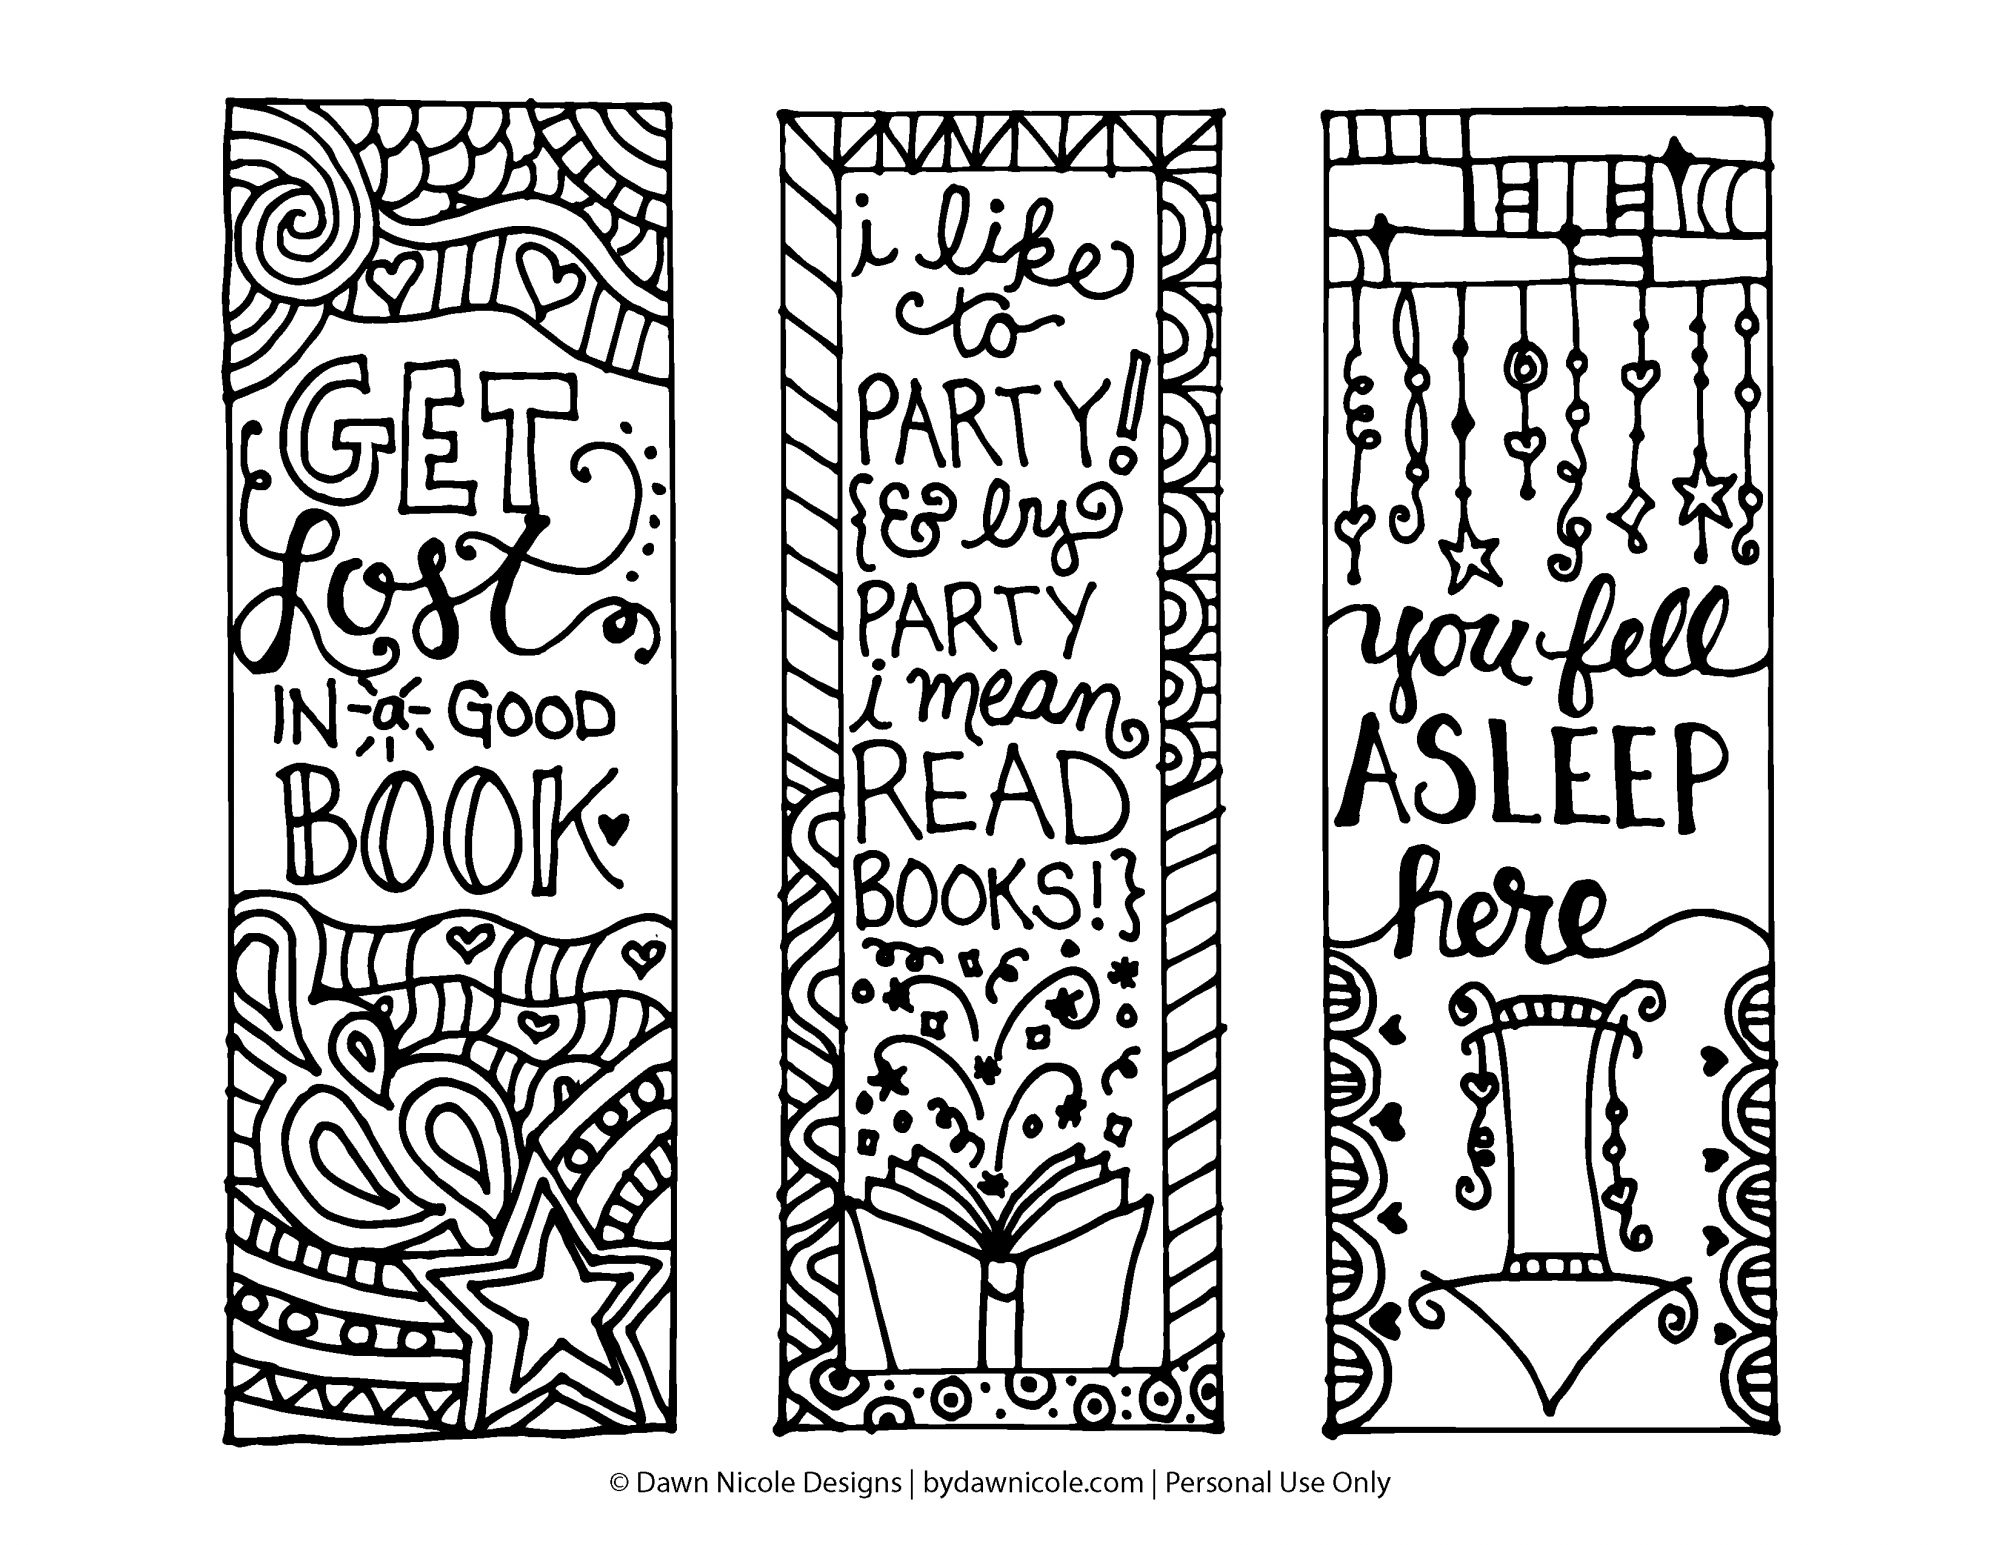 GET
Lost
IN a GOOD
BOOK
i like
to
PARTY!
{& by
PARTY
i mean
READ
BOOKS!}
you fell
ASLEEP
here
© Dawn Nicole Designs | bydawnicole.com | Personal Use Only